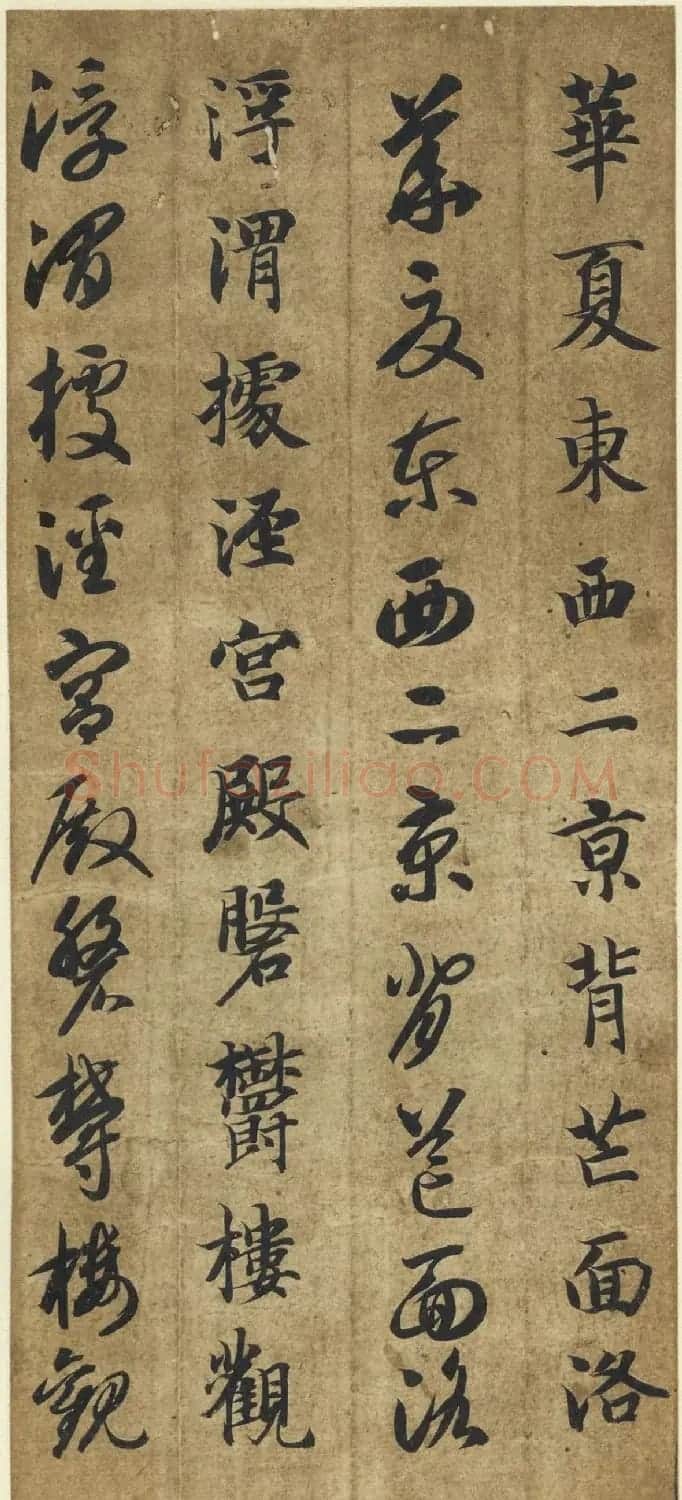 華夏東西二京背芒面洛
華夏東西二京背芒面洛
浮渭據涇宮殿磐鬱樓觀
浮渭據涇宮殿磐鬱樓觀
Shufaziliao.COM